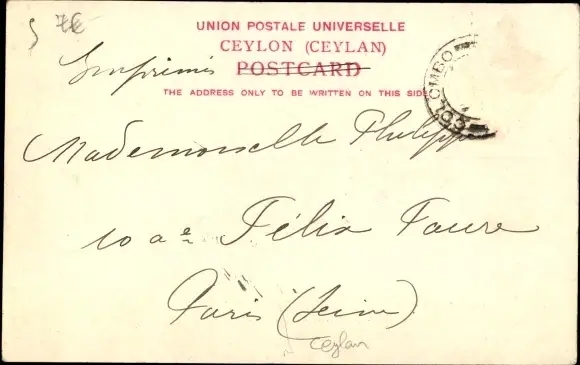 7€
UNION POSTALE UNIVERSELLE
CEYLON (CEYLAN)
Imprimés POSTCARD
THE ADDRESS ONLY TO BE WRITTEN ON THIS SIDE
COLOMBO
Mademoiselle Philippe
10 ae Félix Faure
Paris (Seine)
Ceylan